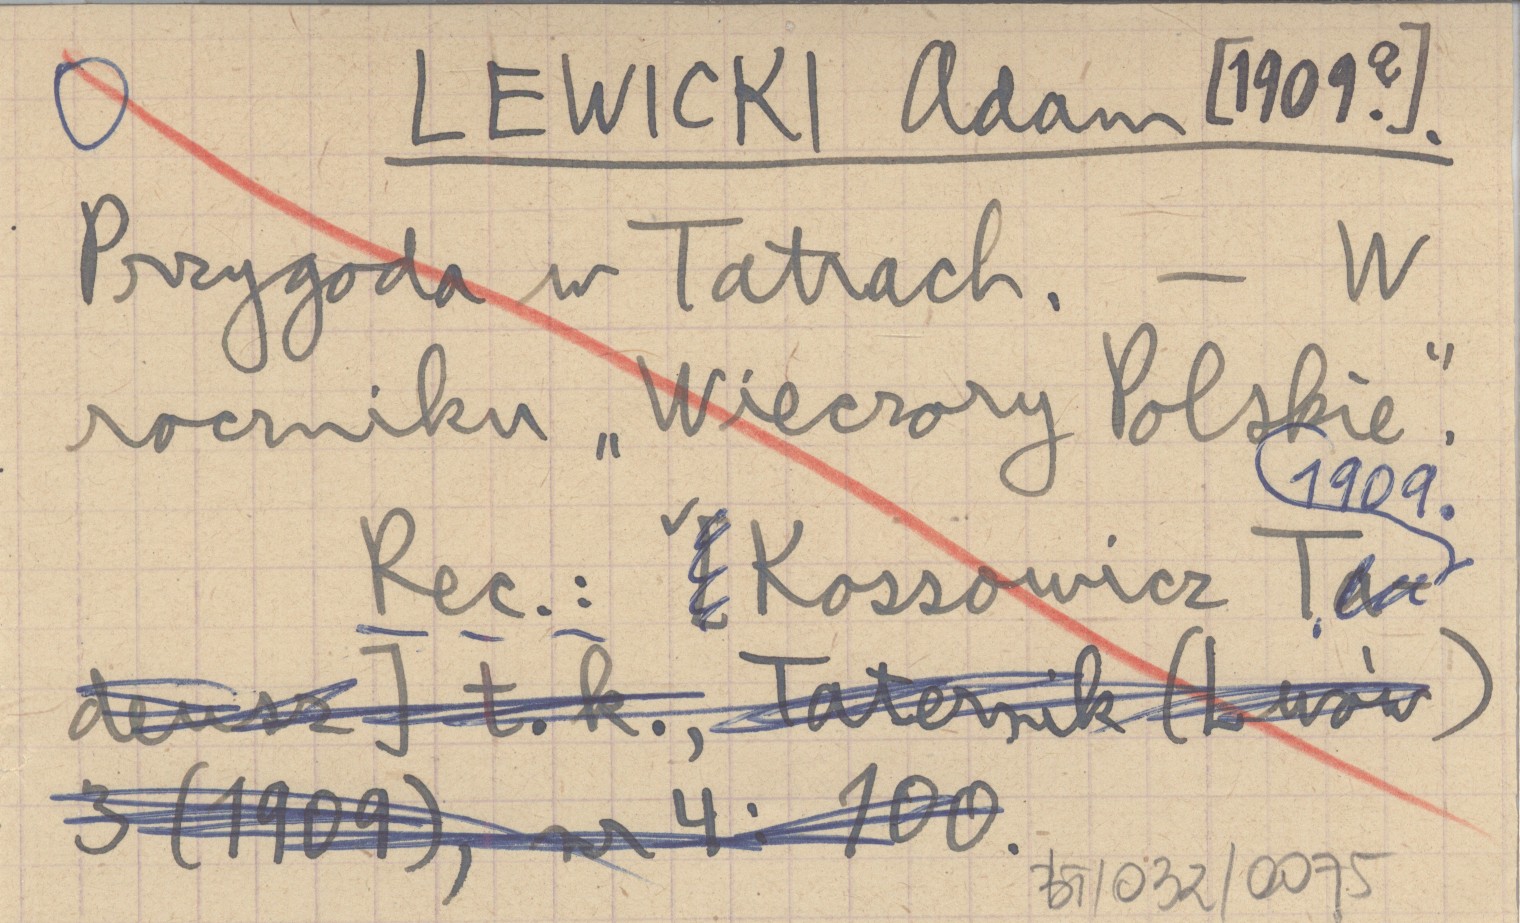 LEWICKI Adam [1909?].
Przygoda w Tatrach. — W
roczniku „Wieczory Polskie".
1909.
Rec.: [Kossowicz Ta
deusz] t.k., Taternik (Lwów)
3 (1909), nr 4: 100.
/032/0075